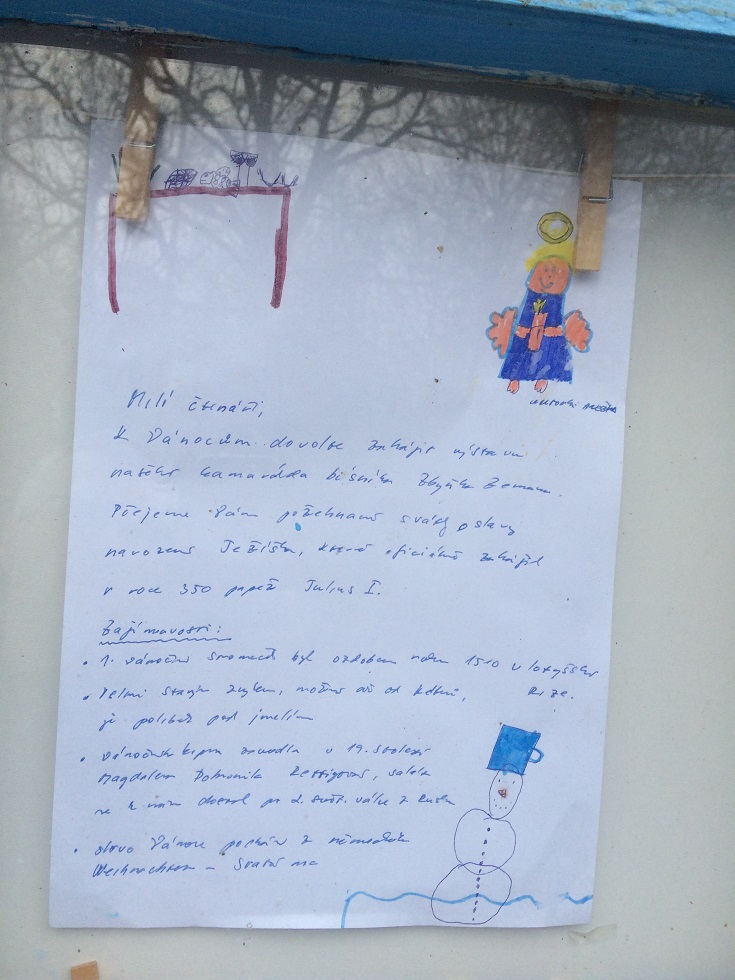 Milí čtenáři,
K Vánocům dovolte zahájit výstavu
našeho kamaráda básníka Zbyňka Zemana.
Přejeme Vám požehnané svátky oslavy
narození Ježíška, které oficiálně zahájil
v roce 350 papež Julius I.
Zajímavosti:
• 1. vánoční stromeček byl ozdoben roku 1510 v lotyšské
Rize.
• Velmi starým zvykem, možná až od Keltů,
je polibek pod jmelím
• vánočního kapra zavedla v 19. století
Magdalena Dobromila Rettigová, salát
se k nám dostal po 2. svět. válce z Ruska
• slovo Vánoce pochází z německého
Weihnachten – Svatá noc